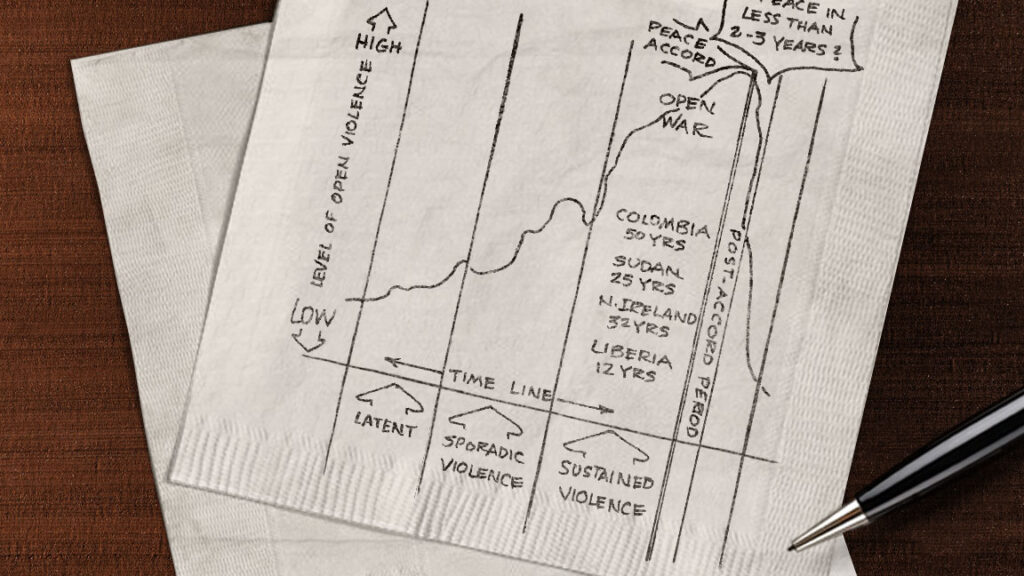 HIGH
LEVEL OF OPEN VIOLENCE
LOW
PEACE
ACCORD
PEACE IN
LESS THAN
2-3 YEARS?
OPEN
WAR
COLOMBIA
50 YRS
SUDAN
25 YRS
N. IRELAND
32 YRS
LIBERIA
12 YRS
POST-ACCORD PERIOD
TIME LINE
LATENT
SPORADIC
VIOLENCE
SUSTAINED
VIOLENCE